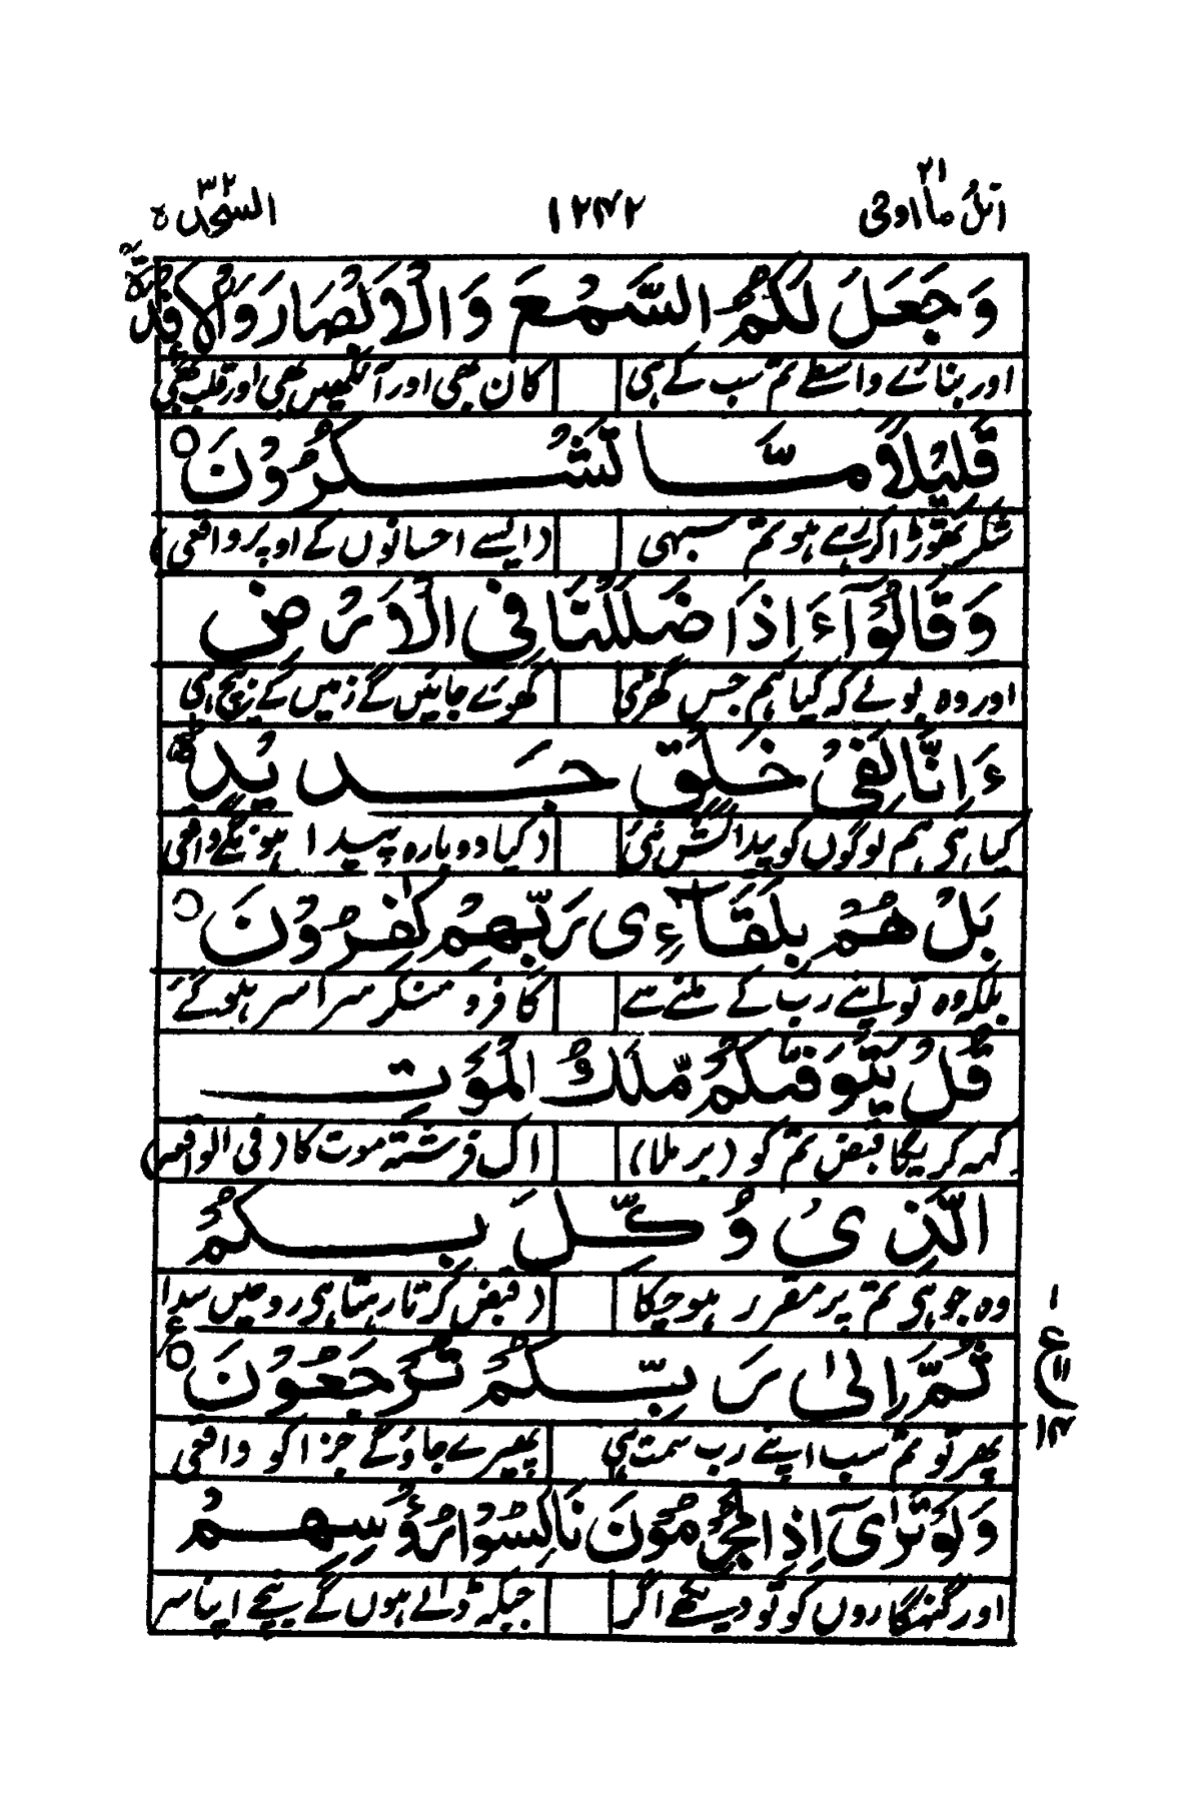 اتل ما اوحی ۲۱ ۱۲۴۲ السجدۃ ۳۲
وَجَعَلَ لَكُمُ السَّمْعَ وَالْاَبْصَارَ وَالْاَفْئِدَةَ
اور بنائے واسطے تم سب کے ہی کان بھی اور آنکھیں بھی اور قلب بھی
قَلِيْلًا مَّا تَشْكُرُوْنَ ○
شکر تھوڑا کر رہے ہو تم سبھی (ایسے احسانوں کے اوپر واقعی)
وَقَالُوْٓا ءَاِذَا ضَلَلْنَا فِى الْاَرْضِ
اور وہ بولے کہ کیا ہم جس گھڑی کھوئے جائیں گے زمیں کے بیچ ہی
ءَاِنَّا لَفِىْ خَلْقٍ جَدِيْدٍ
کیا ہی ہم لوگوں کو پیدائش نئی (کیا دوبارہ پیدا ہونگے واقعی
بَلْ هُمْ بِلِقَآئِ رَبِّهِمْ كٰفِرُوْنَ ○
بلکہ وہ تو اپنے رب کے ملنے سے کافر و منکر سراسر ہو گئے
قُلْ يَتَوَفّٰىكُمْ مَّلَكُ الْمَوْتِ
کہہ کریگا قبض تم کو (برملا) اک فرشتہ موت کا (فی الواقعہ)
الَّذِىْ وُكِّلَ بِكُمْ
وہ جو ہی تم پر مقرر ہو چکا (قبض کرتا رہتا ہی روحیں سدا
ثُمَّ اِلٰى رَبِّكُمْ تُرْجَعُوْنَ ○
پھر تو تم سب اپنے رب سمت ہی پھیرے جاؤگے جزا کو واقعی
۱
ع
۱۱
۱۴
وَلَوْ تَرٰٓى اِذِ الْمُجْرِمُوْنَ نَاكِسُوْا رُءُوْسِهِمْ
اور گنہگاروں کو تو دیکھے اگر جبکہ ڈالے ہوں گے نیچے اپنا سر